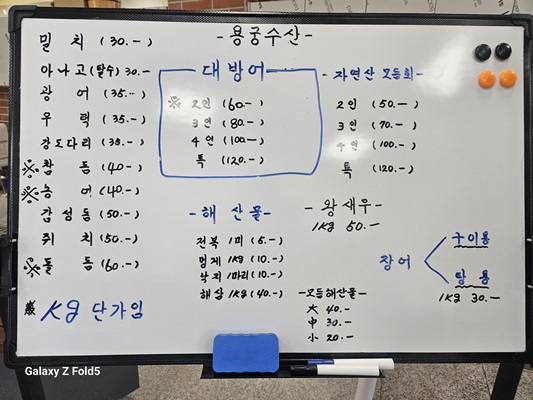 -용궁수산-
밀 치 (30.-)
아나고(탈수) 30.-
광 어 (35.-)
우 럭 (35.-)
강도다리 (35.-)
※참 돔 (40.-)
※농 어 (40.-)
감성돔 (50.-)
쥐 치 (50.-)
※돌 돔 (60.-)
※ Kg 단가임
대방어
※ 2인 (60.-)
3인 (80.-)
4인 (100.-)
특 (120.-)
-자연산 모듬회-
2인 (50.-)
3인 (70.-)
4인 (100.-)
특 (120.-)
-해산물-
전복 1미 (5.-)
멍게 1Kg (10.-)
낙지 1마리 (10.-)
해삼 1Kg (40.-)
-왕새우-
1Kg 50.-
-모듬해산물-
大 40.-
中 30.-
小 20.-
장어
구이용
탕용
1Kg 30.-
Galaxy Z Fold5